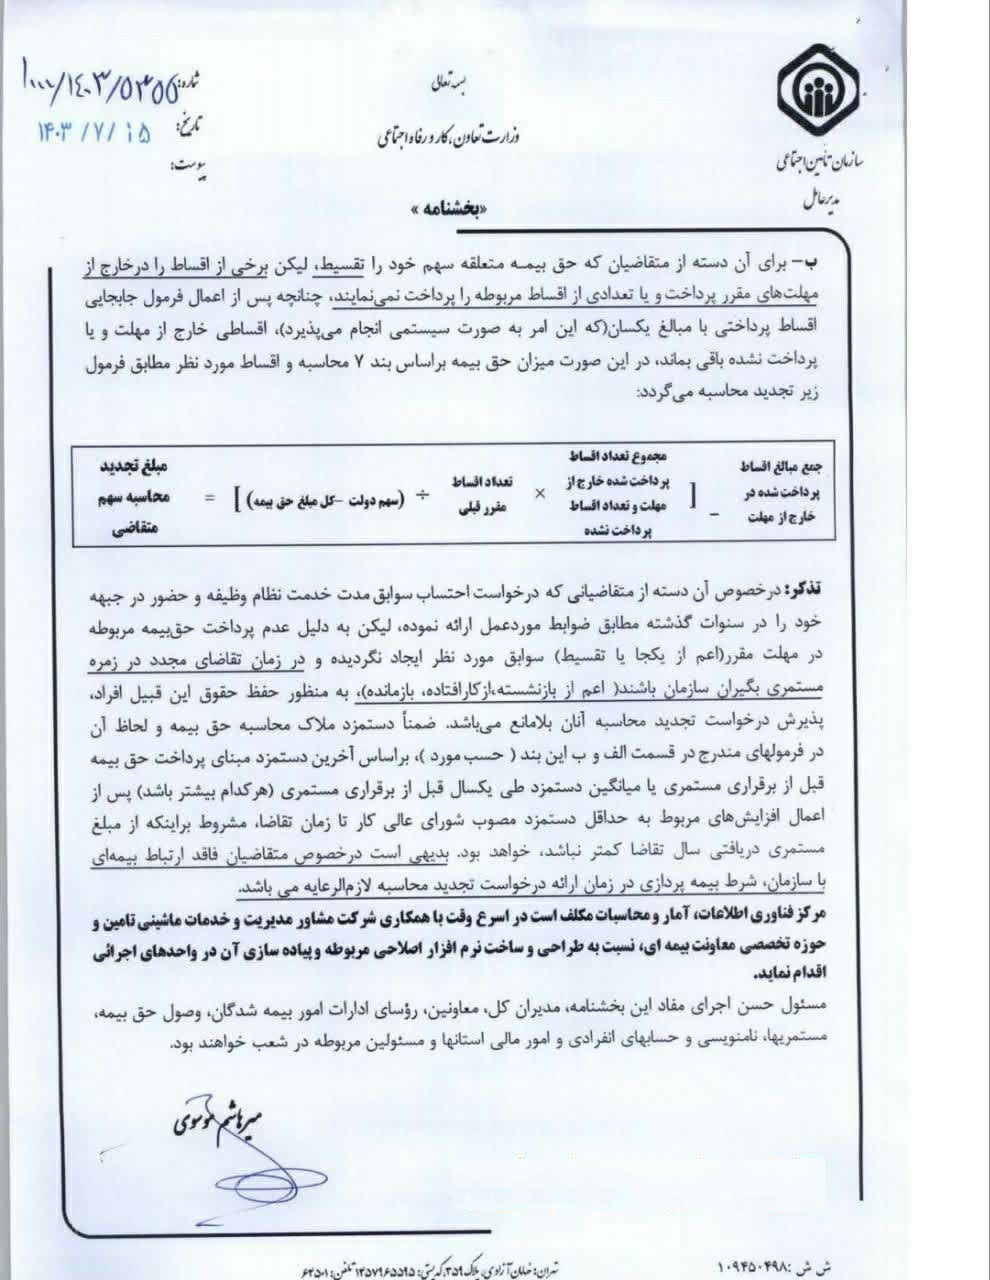 بسمه تعالی
وزارت تعاون، کار و رفاه اجتماعی
سازمان تأمین اجتماعی
مدیرعامل
شماره: ۱۰۰۰/۱۴۰۳/۵۳۵۵
تاریخ: ۱۴۰۳/۷/۱۵
پیوست:
«بخشنامه»
ب– برای آن دسته از متقاضیان که حق بیمه متعلقه سهم خود را تقسیط، لیکن برخی از اقساط را درخارج از
مهلت‌های مقرر پرداخت و یا تعدادی از اقساط مربوطه را پرداخت نمی‌نمایند، چنانچه پس از اعمال فرمول جابجایی
اقساط پرداختی با مبالغ یکسان(که این امر به صورت سیستمی انجام می‌پذیرد)، اقساطی خارج از مهلت و یا
پرداخت نشده باقی بماند، در این صورت میزان حق بیمه براساس بند ۷ محاسبه و اقساط مورد نظر مطابق فرمول
زیر تجدید محاسبه می‌گردد:
جمع مبالغ اقساط
پرداخت شده در
خارج از مهلت
–
[
مجموع تعداد اقساط
پرداخت شده خارج از
مهلت و تعداد اقساط
پرداخت نشده
×
تعداد اقساط
مقرر قبلی
÷
(سهم دولت –کل مبلغ حق بیمه)
]
=
مبلغ تجدید
محاسبه سهم
متقاضی
تذکر: درخصوص آن دسته از متقاضیانی که درخواست احتساب سوابق مدت خدمت نظام وظیفه و حضور در جبهه
خود را در سنوات گذشته مطابق ضوابط موردعمل ارائه نموده، لیکن به دلیل عدم پرداخت حق‌بیمه مربوطه
در مهلت مقرر(اعم از یکجا یا تقسیط) سوابق مورد نظر ایجاد نگردیده و در زمان تقاضای مجدد در زمره
مستمری بگیران سازمان باشند( اعم از بازنشسته،ازکارافتاده، بازمانده)، به منظور حفظ حقوق این قبیل افراد،
پذیرش درخواست تجدید محاسبه آنان بلامانع می‌باشد. ضمناً دستمزد ملاک محاسبه حق بیمه و لحاظ آن
در فرمولهای مندرج در قسمت الف و ب این بند ( حسب مورد )، براساس آخرین دستمزد مبنای پرداخت حق بیمه
قبل از برقراری مستمری یا میانگین دستمزد طی یکسال قبل از برقراری مستمری (هرکدام بیشتر باشد) پس از
اعمال افزایش‌های مربوط به حداقل دستمزد مصوب شورای عالی کار تا زمان تقاضا، مشروط براینکه از مبلغ
مستمری دریافتی سال تقاضا کمتر نباشد، خواهد بود. بدیهی است درخصوص متقاضیان فاقد ارتباط بیمه‌ای
با سازمان، شرط بیمه پردازی در زمان ارائه درخواست تجدید محاسبه لازم‌الرعایه می باشد.
مرکز فناوری اطلاعات، آمار و محاسبات مکلف است در اسرع وقت با همکاری شرکت مشاور مدیریت و خدمات ماشینی تامین و
حوزه تخصصی معاونت بیمه ای، نسبت به طراحی و ساخت نرم افزار اصلاحی مربوطه و پیاده سازی آن در واحدهای اجرائی
اقدام نماید.
مسئول حسن اجرای مفاد این بخشنامه، مدیران کل، معاونین، رؤسای ادارات امور بیمه شدگان، وصول حق بیمه،
مستمریها، نامنویسی و حسابهای انفرادی و امور مالی استانها و مسئولین مربوطه در شعب خواهند بود.
میرهاشم موسوی
ش ش :۱۰۹۴۵۰۴۹۸
تهران: خیابان آزادی، پلاک ۳۵۹، کدپستی: ۱۴۵۷۹۶۵۵۹۵ تلفن: ۶۴۵۰۱